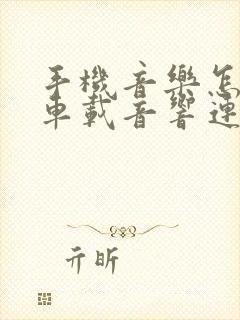 手機音樂怎
車載音響連
亓昕